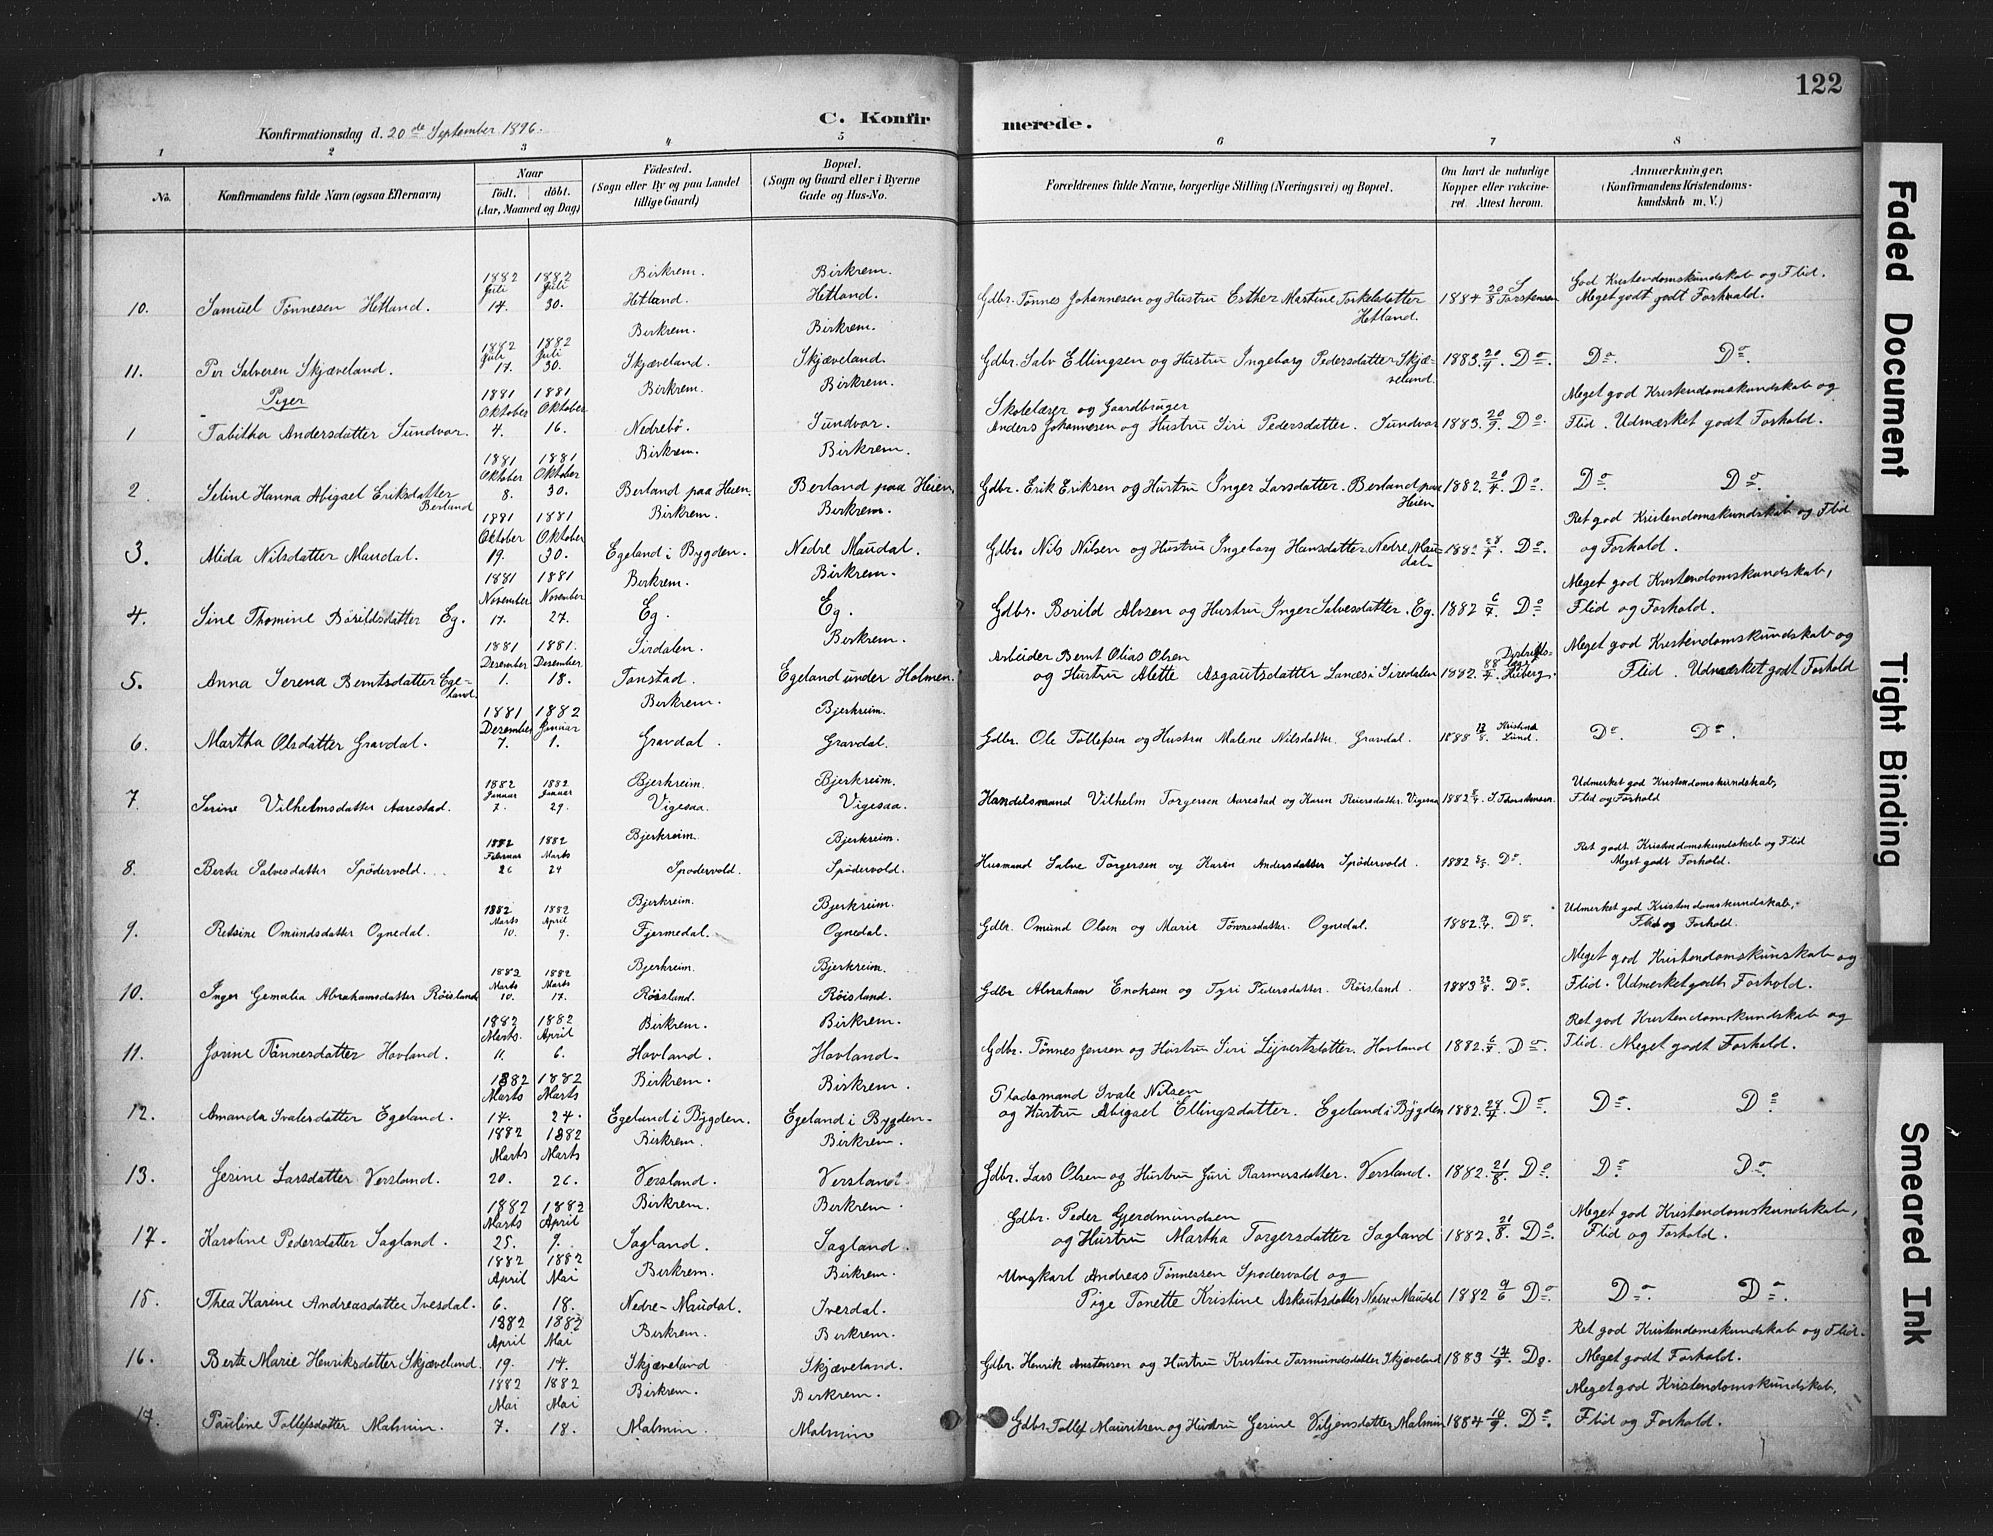 122
Konfirmationsdag d. 20de September 1896.
C. Konfirmerede.
1 2 3 4 5 6 7 8
No. Konfirmandens fulde Navn (ogsaa Efternavn) Naar født. døbt. (Aar, Maaned og Dag) Fødested. (Sogn eller By og paa Landet tillige Gaard) Bopæl. (Sogn og Gaard eller i Byerne Gade og Hus-No. Forældrenes fulde Navne, borgerlige Stilling (Næringsvei) og Bopæl. Om havt de naturlige Kopper eller vakcineret. Attest herom. Anmærkninger, (Konfirmandens Kristendomskundskab m. V.)
10. Samuel Tønnesen Hetland. 1882 Juli 14. 1882 Juli 30. Birkrem. Hetland. Birkrem. Hetland. Gdbr. Tønnes Johannesen og Hustru Esther Martine Torkelsdatter Hetland. 1884 20/8 S Torstensen God Kristendomskundskab og Flid. Meget godt godt Forhold.
11. Per Salvesen Skjæveland. 1882 Juli 17. 1882 Juli 30. Birkrem. Skjæveland. Birkrem. Skjæveland. Gdbr. Salv Ellingsen og Hustru Ingeborg Pedersdatter Skjæveland. 1883. 20/9. Do. Do. Do.
Piger
1 Tabitha Andersdatter Sundvor. 1881 Oktober 4. 1881 Oktober 16. Birkrem. Nedrebö. Birkrem. Sundvor. Skolelærer og Gaardbruger Anders Johannesen og Hustru Siri Pedersdatter. Sundvor 1883. 20/9. Do. Meget god Kristendomskundskab og Flid. Udmærket godt Forhold.
2. Seline Hanna Abigael Eriksdatter Berland 1881 Oktober 8. 1881 Oktober 30. Birkrem. Berland paa Heien. Birkrem. Berland paa Heien. Gdbr. Erik Eriksen og Hustru Inger Larsdatter. Berland paa Heien 1882. Do. Do. Do.
3. Alida Nilsdatter Maudal. 1881 Oktober 19. 1881 Oktober 30. Birkrem. Egeland i Bygden. Birkrem. Nedre Maudal. Gdbr. Nils Nilsen og Hustru Ingeborg Hansdatter Nedre Maudal 1882 Do. Ret god Kristendomskundskab og Flid og Forhold.
4. Sine Thomine Bårildsdatter Eg. 1881 November 17. 1881 November 27. Birkrem. Eg. Birkrem. Eg. Gdbr. Borild Alvsen og Hustru Inger Salvesdatter. Eg. 1882 Do Meget god Kristendomskundskab, Flid og Forhold.
5. Anna Serena Berntsdatter Egeland. 1881 Desember 1. 1881. Desember. 18. Sirdalen. Tonstad. Birkrem. Egeland under Holmen. Arbeider Bernt Olias Olsen og Hustru Alette Asgautsdatter i Siredalen 1882. Distriktslæge Meget god Kristendomskundskab og Flid. Udmærket godt Forhold
6. Martha Olsdatter Gravdal. 1881 Desember 7. 1882 Januar 1. Birkrem. Gravdal. Bjerkreim. Gravdal. Gdbr. Ole Tollefsen og Hustru Malene Nilsdatter. Gravdal. 1888 Kristine Lund. Do. Do.
7. Serine Vilhelmsdatter Aarestad. 1882 Januar 7. 1882 Januar 29. Bjerkreim. Vigesaa. Bjerkreim. Vigesaa. Handelsmand Vilhelm Torgersen Aarestad og Karen Reiersdatter. Vigesaa 1882 Udmerket god Kristendomskundskab, Flid og Forhold
8. Berta Salvesdatter Spødervold. 1882 Februar 26 1882 Marts 24 Bjerkreim. Spødervold. Bjerkreim. Spødervold. Husmand Salve Torgersen og Karen Andersdatter Spødervold. 1882 Do. Ret godt Kristendomskundskab og Flid Meget godt Forhold.
9. Retsine Omundsdatter Ognedal. 1882 Marts 10. 1882 April 9. Bjerkreim. Fjermedal. Bjerkreim. Ognedal. Gdbr. Omund Olsen og Marie Tønnesdatter. Ognedal. 1882. Do. Udmerket god Kristendomskundskab, Flid og Forhold.
10. Inger Gemalia Abrahamsdatter Röisland 1882 Marts 10. 1882 Marts 17. Bjerkreim. Röisland. Bjerkreim. Röisland. Gdbr Abraham Enoksen og Tyri Pedersdatter. Röisland. 1883 Do. Meget god Kristendomskunskab og Flid. Udmerket godt Forhold.
11. Josine Tønnesdatter Hovland. 1882 Marts. 11. 1882 April 6. Birkrem. Hovland. Birkrem. Hovland. Gdbr. Tønnes Jensen og Hustru Siri Sijvertsdatter. Hovland 1882. Do. Ret god Kristendomskundskab og Flid. Meget godt Forhold.
12. Amanda Ivalesdatter Egeland. 1882 Marts 14. 1882 Marts 24. Birkrem. Egeland i Bygden. Birkrem. Egeland i Bygden. Pladsmand Ivale Nilsen og Hustru Abigael Ellingsdatter. Egeland i Bygden 1882. Do. Do. Do
13. Gesine Larsdatter Versland. 1882 Marts 20. 1882 Marts 26. Birkrem. Versland. Birkrem. Versland. Gdbr. Lars Olsen og Hustru Juri Rasmusdatter. Versland. 1882. 21/8. Do Do Do
17. Karoline Pedersdatter Sagland. 1882 Marts 25. 1882 April 9. Birkrem. Sagland. Birkrem. Sagland. Gdbr. Peder Gjerdmundsen og Hustru Martha Torgersdatter Sagland 1882. 21/8. Do. Meget god Kristendomskundskab, Flid og Forhold.
15. Thea Karine Andreasdatter Ivesdal. 1882 April 6. 1882 Mai 18. Birkrem. Nedre-Maudal. Birkrem. Ivesdal. Ungkarl Andreas Tønnessen Spødervold og Pige Tonette Kristine Askautsdatter Nedre Maudal 1882 9/6 Do. Do. Do.
16. Berte Marie Henriksdatter Skjæveland. 1882 April 19. 1882 Mai 14. Birkrem. Skjæveland Birkrem. Skjæveland. Gdbr. Henrik Anstensen og Hustru Kristine Tormundsdatter Skjæveland 1883 Do. Ret god Kristendomskundskab og Flid. Meget godt Forhold.
17. Pauline Tollefsdatter Malmin. 1882 Mai 7. 1882 Mai 18. Birkrem. Malmin. Birkrem. Malmin Gdbr. Tollef Mauritsen og Hustru Gesine Viljensdatter Malmin 1884 10/9. Do. Meget god Kristendomskundskab, Flid og Forhold.
Faded Document
Tight Binding
Smeared Ink